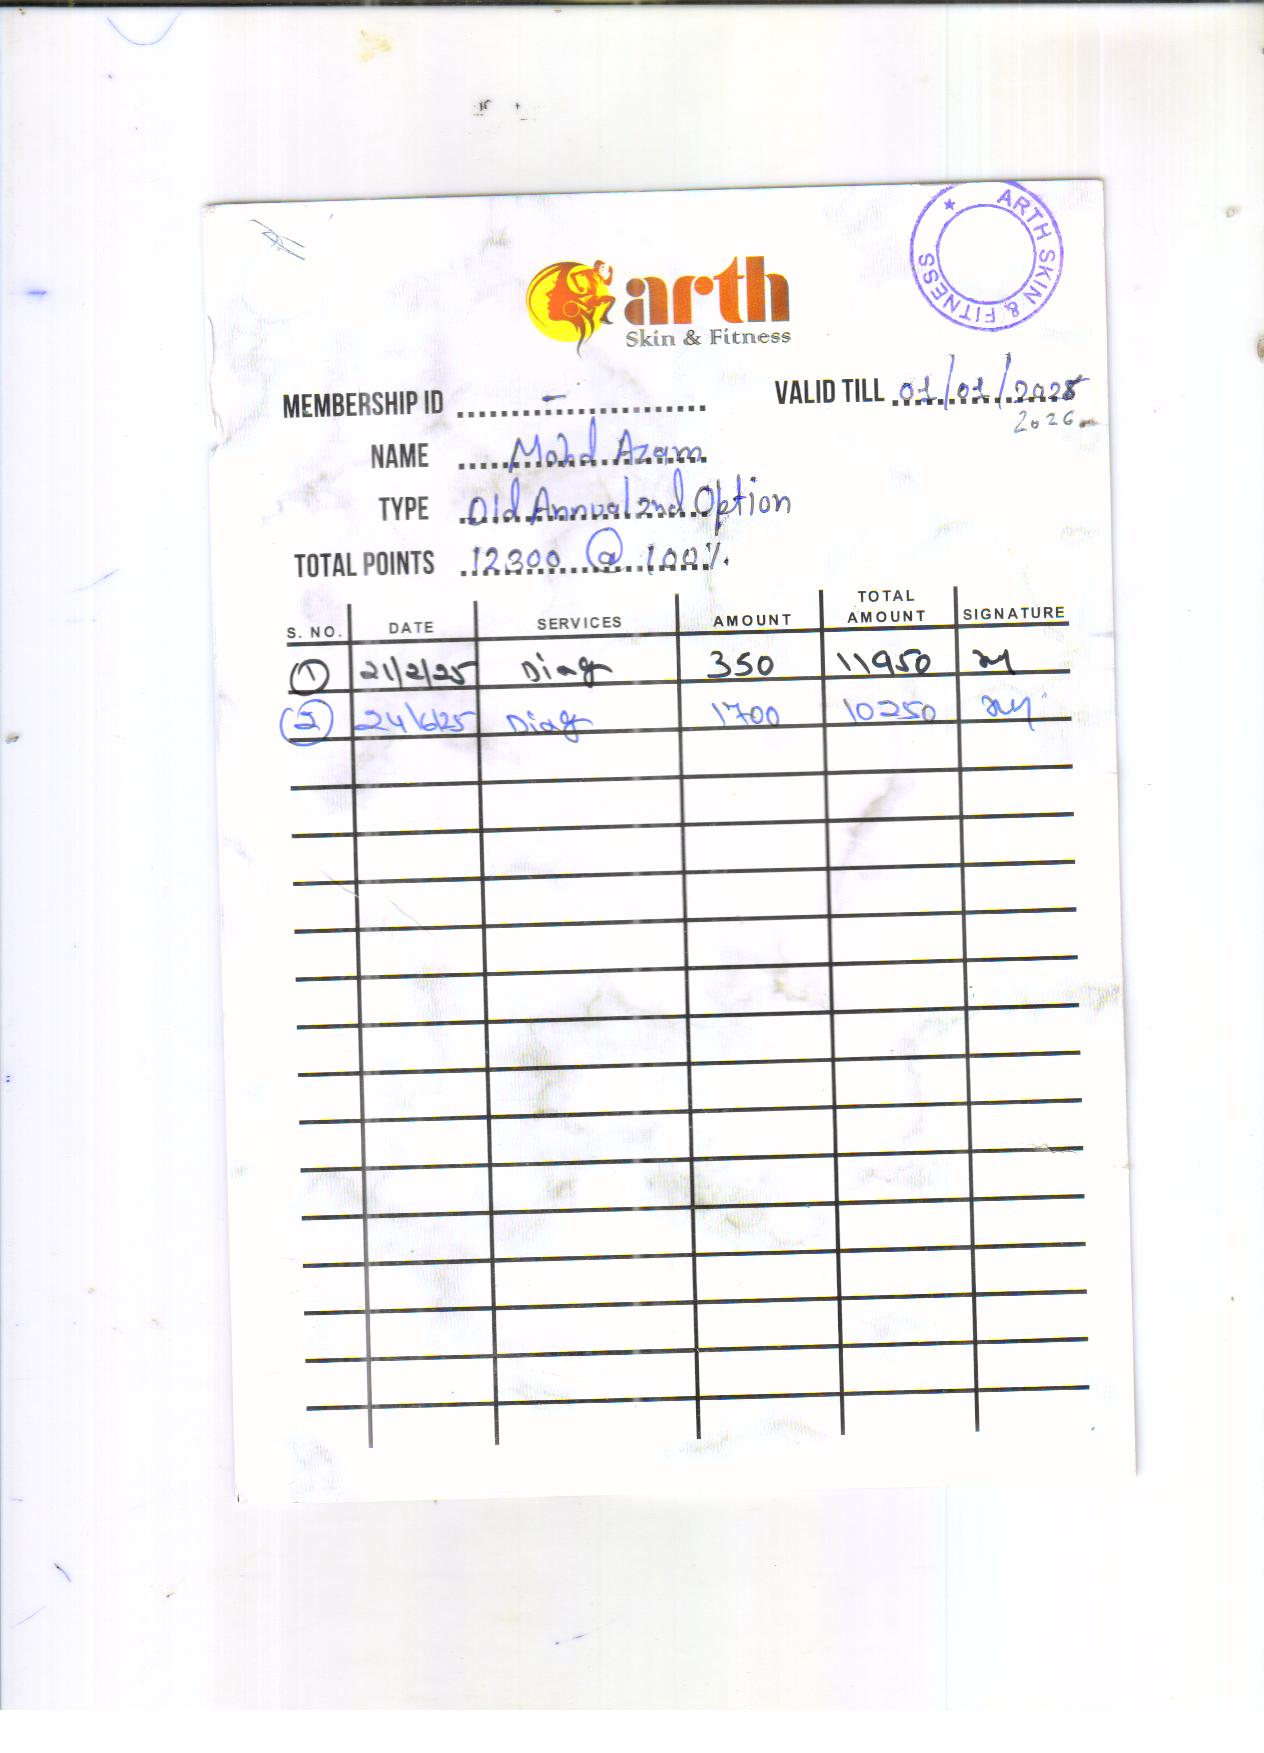 ARTH SKIN & FITNESS
arth
Skin & Fitness
MEMBERSHIP ID -
VALID TILL 01/01/2025
2026
NAME Mohd Azam
TYPE Old Annual 2nd Option
TOTAL POINTS 12300 @ 100%
S. NO. DATE SERVICES AMOUNT TOTAL AMOUNT SIGNATURE
1 21/2/25 Diag 350 11950
2 24/6/25 Diag 1700 10250